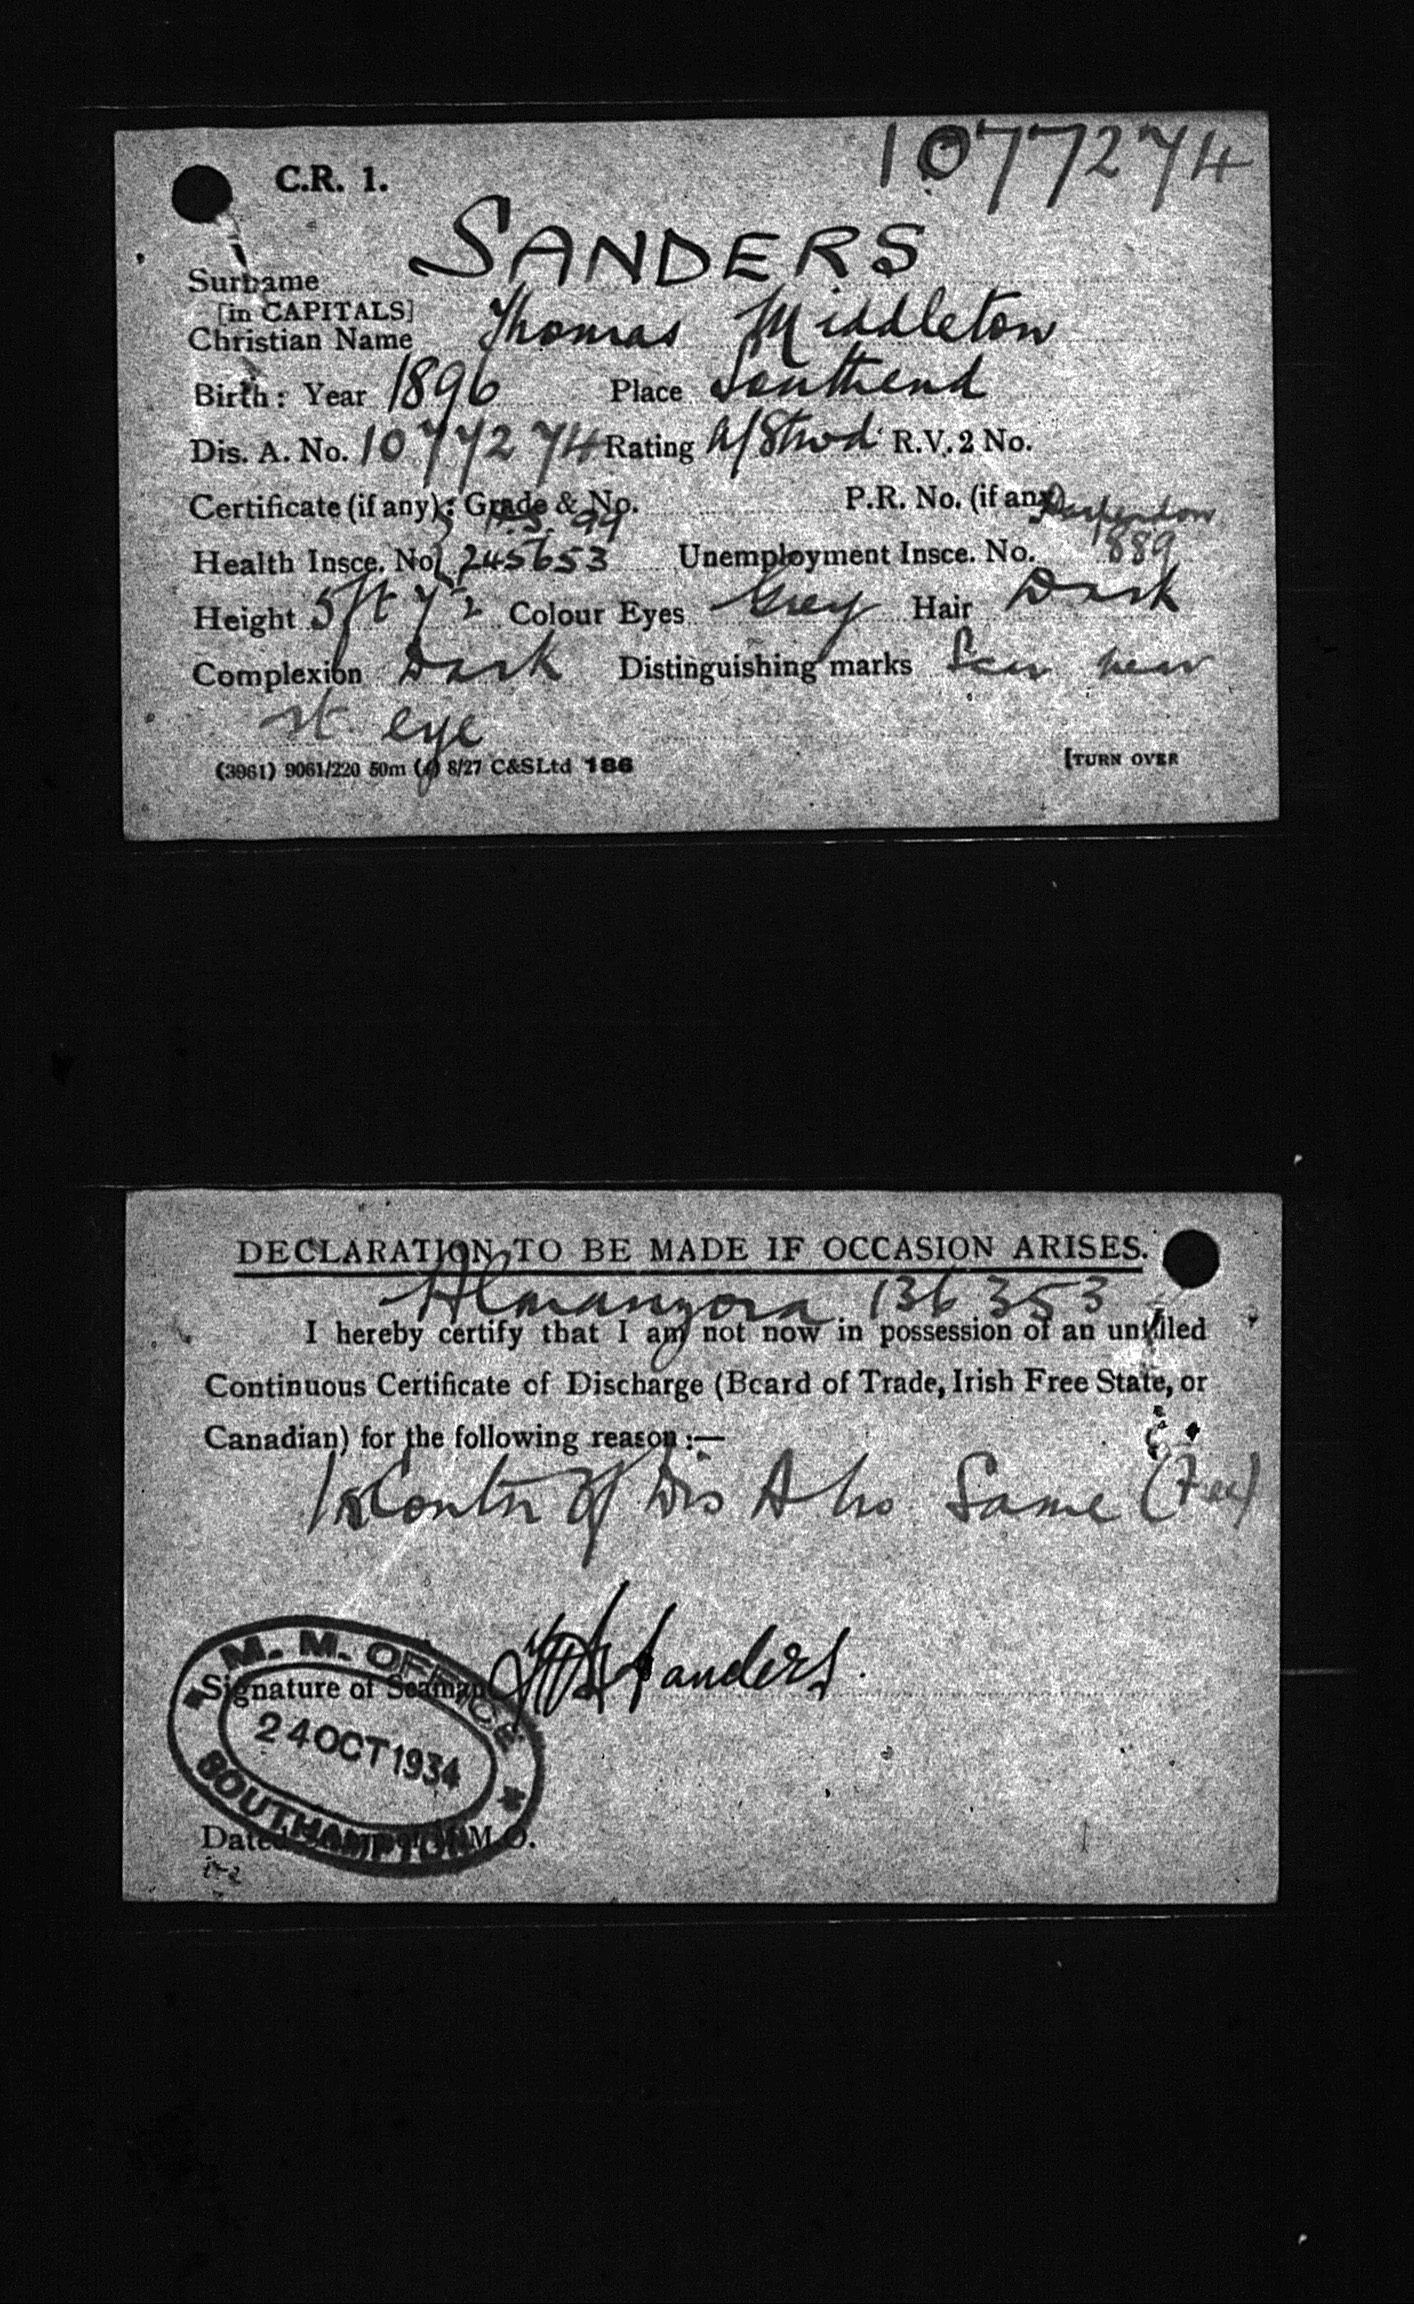 C.R. 1.
1077274
Surname SANDERS
[in CAPITALS]
Christian Name Thomas Middleton
Birth: Year 1896 Place Southend
Dis. A. No. 1077274 Rating A/Stwd R.V. 2 No.
Certificate (if any): Grade & No. P.R. No. (if any)
99
Health Insce. No. 245653 Unemployment Insce. No. 889
Height 5ft 7½ Colour Eyes Grey Hair Dark
Complexion Dark Distinguishing marks Scar near
rt eye
(3961) 9061/220 50m (9) 8/27 C&SLtd 186 [TURN OVER
DECLARATION TO BE MADE IF OCCASION ARISES.
Almanzora 136353
I hereby certify that I am not now in possession of an unfilled
Continuous Certificate of Discharge (Board of Trade, Irish Free State, or
Canadian) for the following reason :—
Contn of Dis A No Same
M. M. OFFICE
Signature of Seaman Sanders
24 OCT 1934
SOUTHAMPTON
Dated M.M.O.